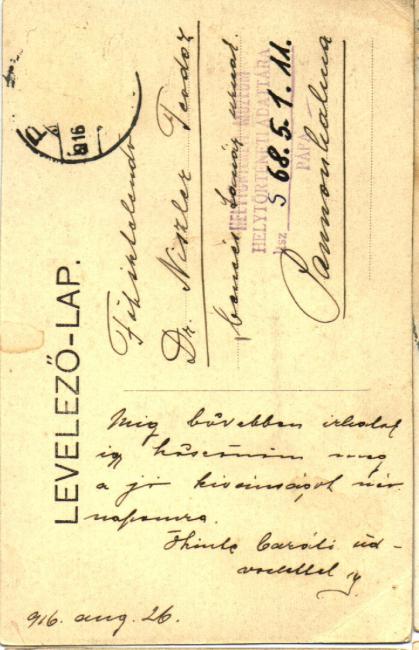 LEVELEZŐ-LAP.
Főtisztelendő
Dr. Niszler Teodóz
bencés tanár úrnak.
Pannonhalma
HELYTÖRTÉNETI ADATTÁRA
PÁPA
lsz
68.5.1.11.
916
Míg bővebben írhatok
így köszönöm meg
a jó kívánságot név-
napomra.
Őszinte baráti üd-
vözlettel
916. aug. 26.